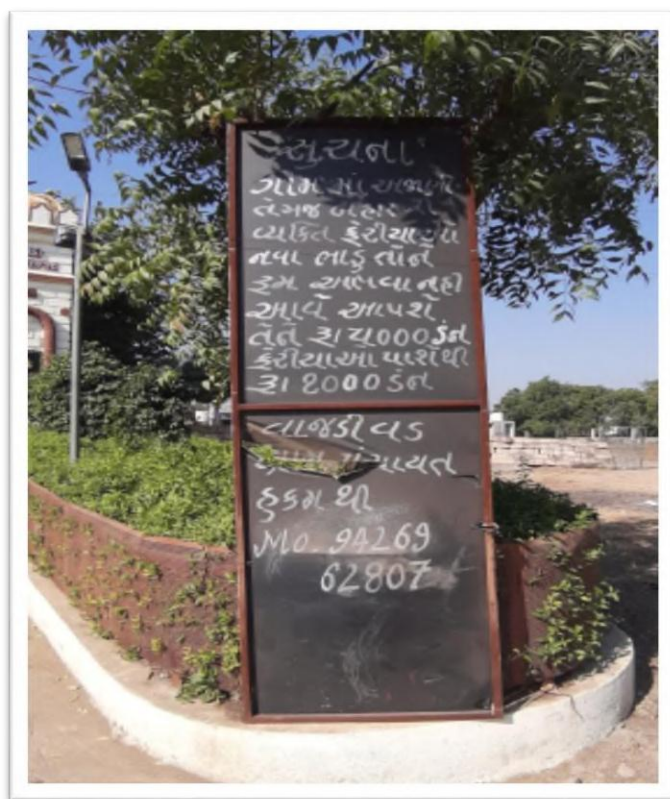 સુચના
ગામ માં અજાણી
તેમજ બહાર ની
વ્યકિત ફેરીયાઓ
નવા ભાડુ તોને
રૂમ આપવા નહી
આવે આપશે
તેને રૂા ૫૦૦૦ દંડ
ફેરીયાઓ પાસેથી
રૂા ૨૦૦૦ દંડ
વાજડી વડ
ગ્રામ પંચાયત
હુકમ થી
Mo. 94269
62807